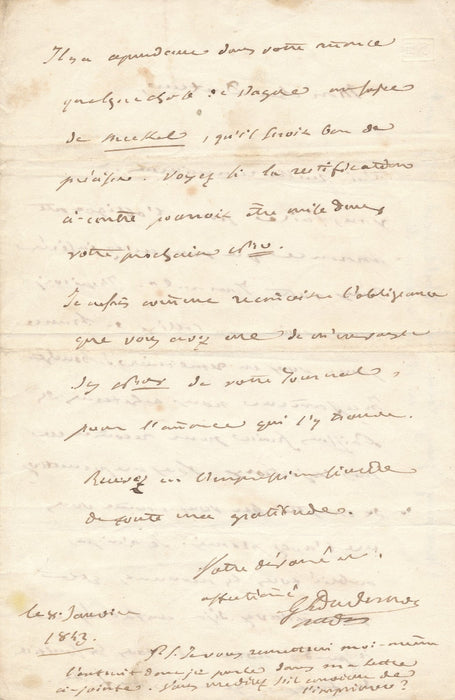 Il y a cependant dans votre annonce
quelque chose de vague au sujet
de Meckel, qu'il seroit bon de
préciser. Voyez si la rectification
ci-contre pourroit être mise dans
votre prochain No.
Je connois l'obligeance
que vous avez eue de m'envoyer
des Nos de votre Journal,
pour l'annonce qui s'y trouve.
Recevez ici l'expression sincère
de toute ma gratitude.
Votre dévoué et
affectionné
le 8 Janvier
1843.
P.S. Je vous remettrai moi-même
l'extrait dont je parle dans ma lettre
ci-jointe. Vous me direz s'il convient de
l'imprimer?